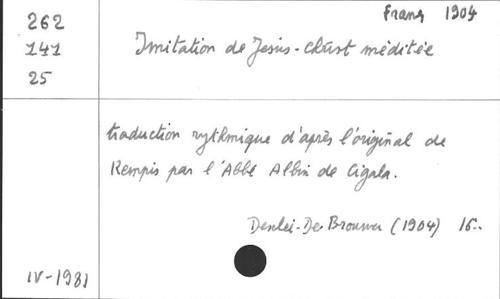 franç 1904
262
141
25
Imitation de Jesus-Christ méditée
traduction rythmique d'après l'original de
Kempis par l'Abbé Albin de Cigala.
Desclei-De Brouwer (1904) 16..
IV-1981